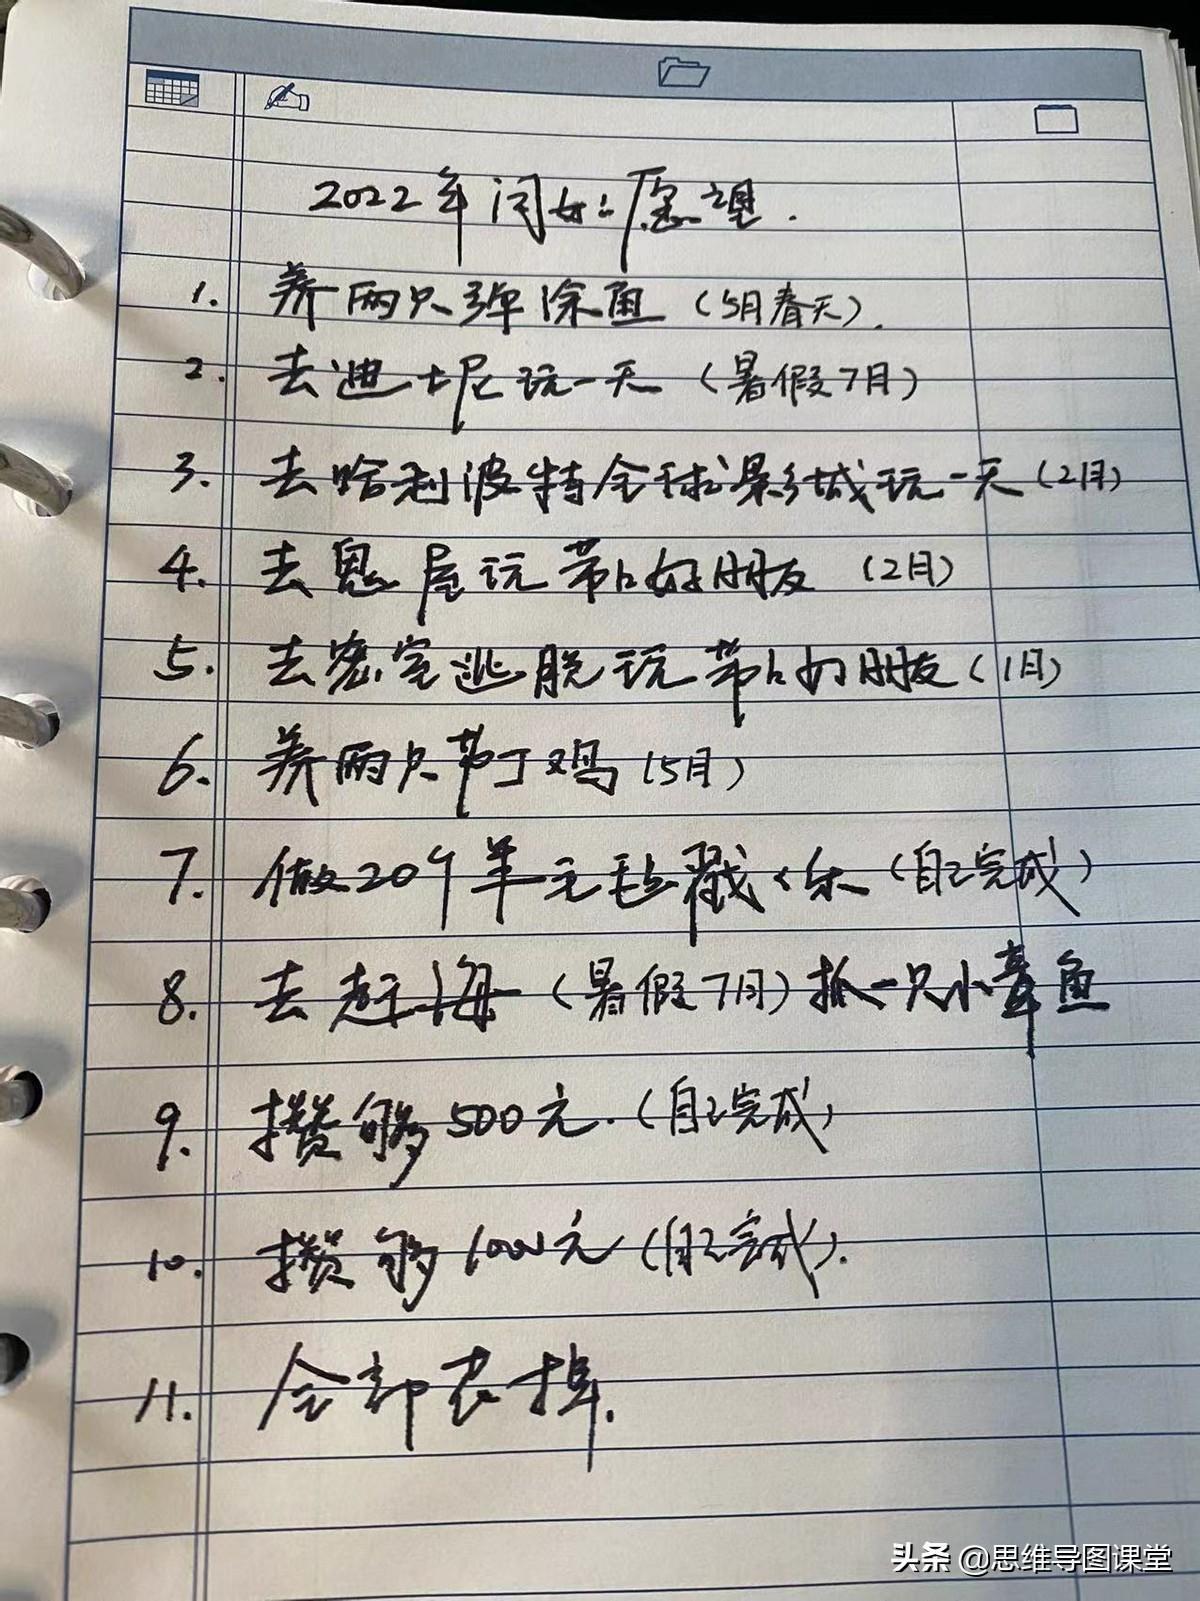 2022年闺女愿望.
1. 养两只弹涂鱼(5月春天).
2. 去迪士尼玩一天(暑假7月)
3. 去哈利波特全球影城玩一天(2月)
4. 去鬼屋玩带上好朋友(2月)
5. 去密室逃脱玩带上好朋友(1月)
6. 养两只芦丁鸡(5月)
7. 做20个羊毛毡戳戳乐(自己完成)
8. 去赶海(暑假7月)抓一只小章鱼
9. 攒够500元.(自己完成)
10. 攒够1000元(自己完成).
11. 全部花掉.
头条 @思维导图课堂